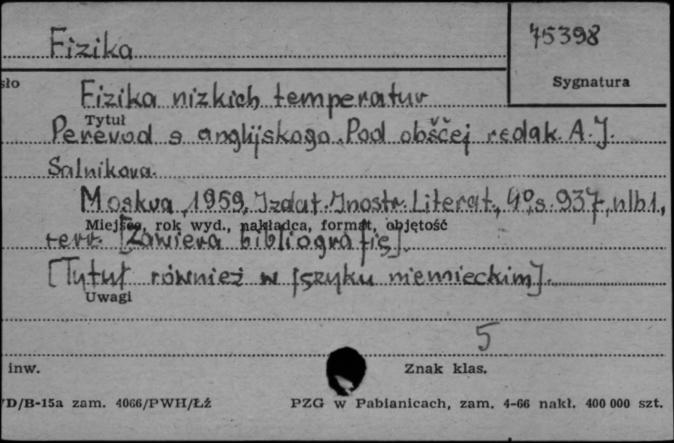 Fizika
75398
sło
Sygnatura
Fizika nizkich temperatur
Tytuł
Perevod s anglijskogo. Pod obščej redak. A.J.
Salnikova.
Moskva, 1959, Izdat. Inostr. Literat., 4°, s. 937, nlb1,
Miejsce, rok wyd., nakładca, format, objętość
[Zawiera bibliografię].
[Tytuł również w języku niemieckim].
Uwagi
5
inw.
Znak klas.
/D/B-15a zam. 4066/PWH/ŁŻ
PZG w Pabianicach, zam. 4-66 nakł. 400 000 szt.